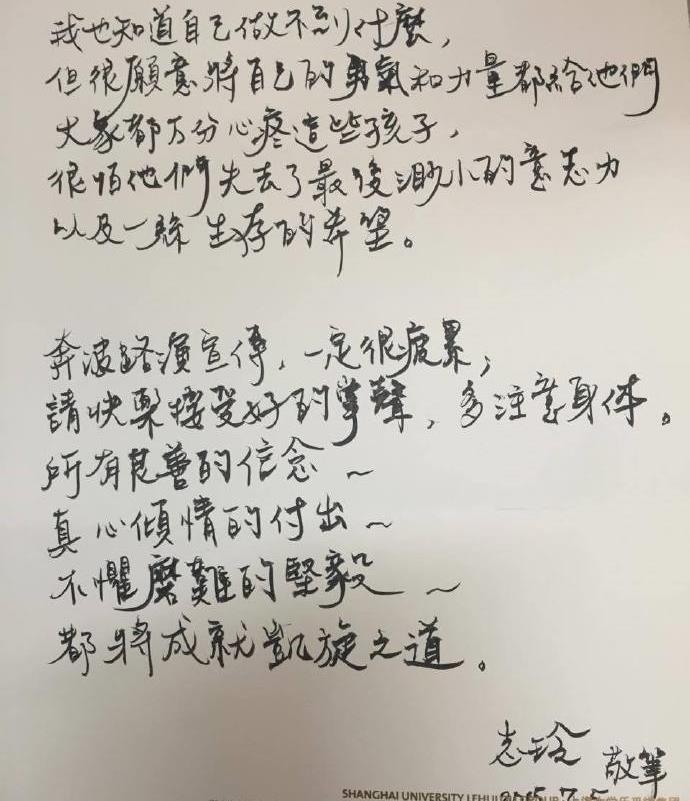 我也知道自己做不到什麼，
但很願意將自己的勇氣和力量都給他們
大家都万分心疼這些孩子，
很怕他們失去了最後渺小的意志力
以及一絲生存的希望。
奔波路演宣傳，一定很疲累，
請快樂接受好的掌聲，多注意身体。
所有良善的信念～
真心傾情的付出～
不懼磨難的堅毅～
都將成就凱旋之道。
志玲 敬筆
2015.7.5
SHANGHAI UNIVERSITY LEHU